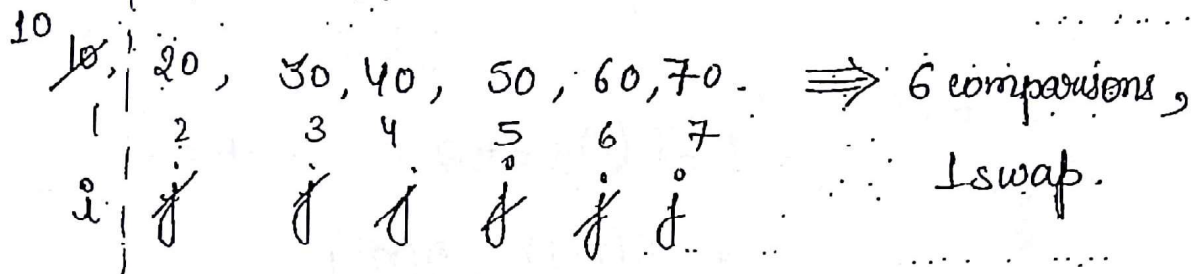 10
10, 20, 30, 40, 50, 60, 70. ⇒ 6 comparisons,
1 2 3 4 5 6 7
1 swap.
i j j j j j j